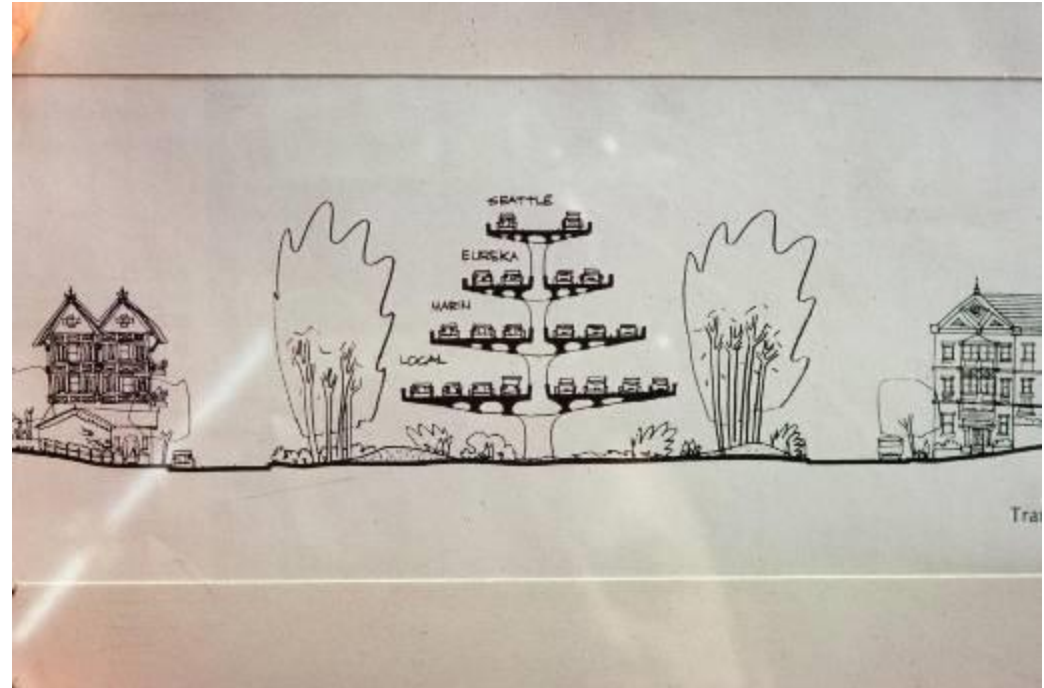 SEATTLE
EUREKA
MARIN
LOCAL